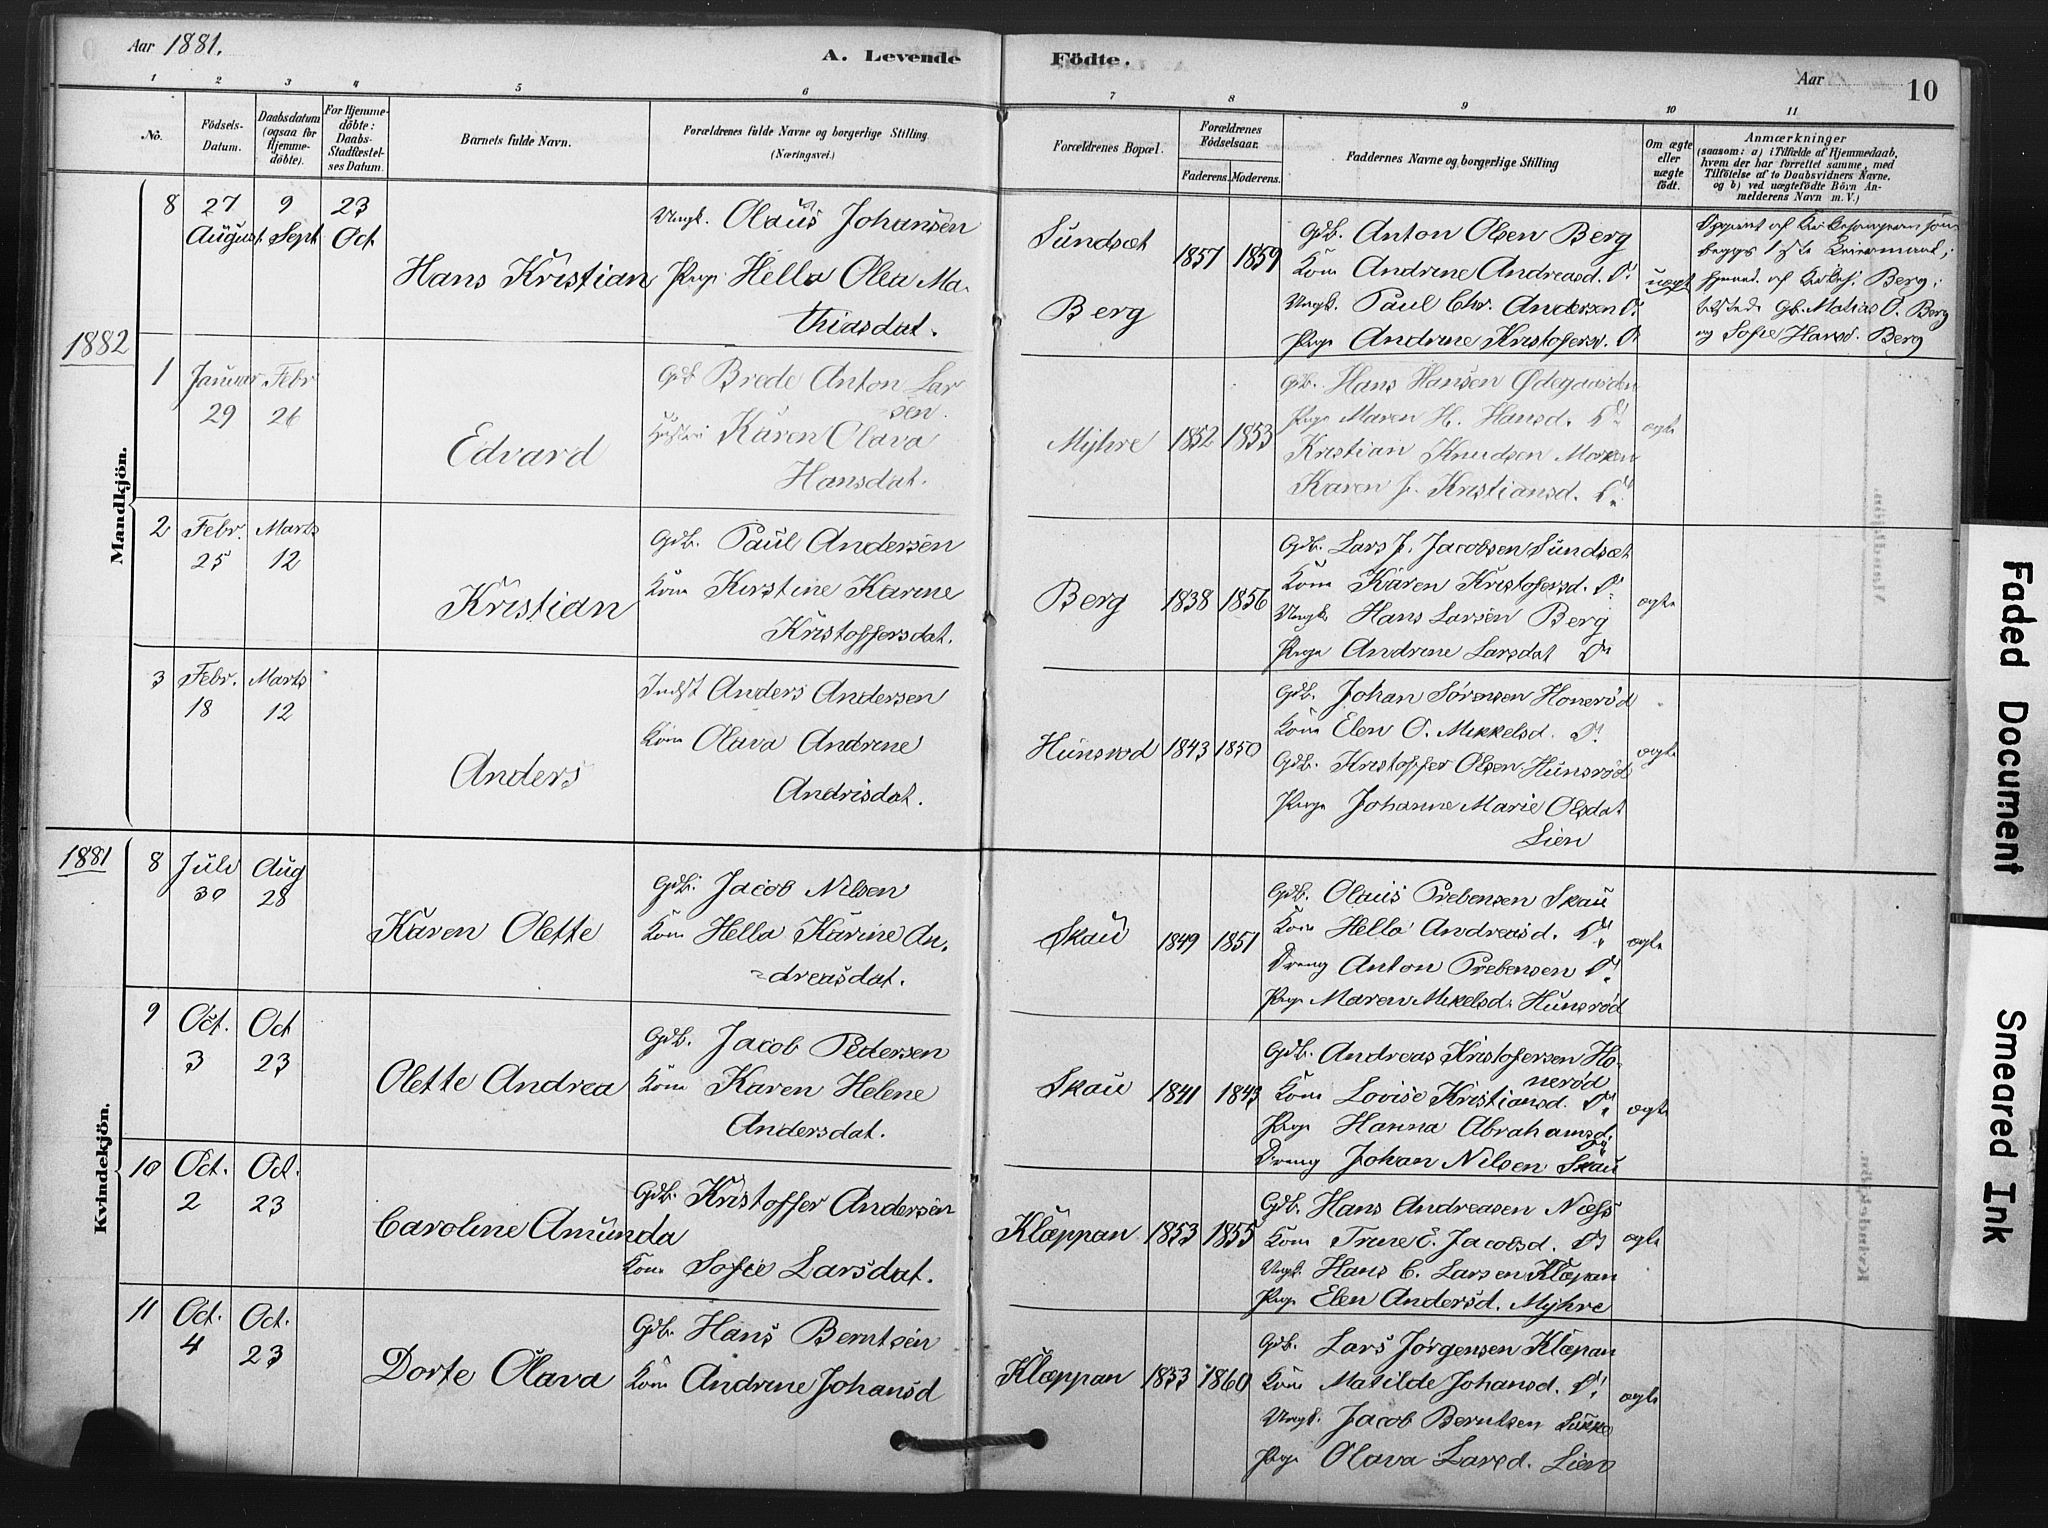 Aar 1881.
A. Levende Födte.
Aar
10
1 2 3 4 5 6 7 8 9 10 11
No.
Födsels-Datum.
Daabsdatum (ogsaa for Hjemmedöbte).
For Hjemmedöbte: Daabs-Stadfæstelses Datum.
Barnets fulde Navn.
Forældrenes fulde Navne og borgerlige Stilling
(Næringsvei.)
Forældrenes Bopæl.
Forældrenes Födselsaar.
Faderens. Moderens.
Faddernes Navne og borgerlige Stilling
Om ægte eller uægte födt.
Anmærkninger
(saasom: a) i Tilfælde af Hjemmedaab,
hvem der har forrettet samme, med
Tilföielse af to Daabsvidners Navne,
og b) ved uægtefödte Börn Anmelderens Navn m. V.)
Mandkjön.
8 27 August. 9 Sept 23 Oct
Hans Kristian
Ungk. Olaus Johansen
Pige Hella Olea Ma-
thiasdat.
Sundsæt
Berg
1857 1859
Gdb. Anton Olsen Berg
Kone Andrine Andreasd. Do
Ungk. Paul Chr. Andersen Do
Pige Andrine Kristofersd. Do
uægt
begges 1ste Leiermaal;
Berg;
Gb. Matias O. Berg
og Sofie Hansd. Berg
1882
1 Januar 29 Febr 26
Edvard
Gdb Brede Anton Lar
sen.
Hustru Karen Olava
Hansdat.
Myhre 1852 1853
Gb. Hans Hansen Ödegaarden
Pige Maren H. Hansd. Do
Kristian Knudsen Moren
Karen J. Kristiansd. Do
ægte
2 Febr. 25 Marts 12
Kristian
Gdb. Paul Andersen
Kone Kirstine Karine
Kristoffersdat.
Berg 1838 1856
Gdb. Lars J. Jacobsen Sundsæt
Kone Karen Kristofersd. Do
Ungk. Hans Larsen Berg
Pige Andrine Larsdat Do
ægte
3 Febr. 18 Marts 12
Anders
Indst Anders Andersen
Kone Olava Andrine
Andrisdat.
Hunsröd 1843 1850
Gdb. Johan Sörensen Honeröd
Kone Elen O. Mikkelsd. Do
Gdb. Kristoffer Olsen Hunsröd
Pige Johanne Marie Olsdat
Lien
ægte
Kvindekjön.
1881
8 Juli 30 Aug 28
Karen Olette
Gdb. Jacob Nilsen
Kone Hella Karine An-
dreasdat.
Skau 1849 1851
Gdb. Olaus Prebensen Skau
Kone Hella Andreasd. Do
Dreng Anton Prebensen Do
Pige Maren Mikelsd. Hunsröd
ægte
9 Oct. 3 Oct 23
Olette Andrea
Gdb. Jacob Pedersen
Kone Karen Helene
Andersdat.
Skau 1841 1843
Gdb. Andreas Kristofersen Ho-
neröd
Kone Lovise Kristiansd. Do
Pige Hanna Abrahamsd. Do
Dreng Johan Nilsen Skau
ægte
10 Oct. 2 Oct. 23
Caroline Amunda
Gdb. Kristoffer Andersen
Kone Sofie Larsdat.
Klæppan 1853 1855
Gdb. Hans Andreasen Næss
Kone Trine E. Jacobsd. Do
Ungk. Hans C. Larsen Klæpan
Pige Elen Andersd. Myhre
ægte
11 Oct. 4 Oct. 23
Dorte Olava
Gdb. Hans Berntsen
Kone Andrine Johansd
Klæppan 1833 1860
Gdb. Lars Jörgensen Klæpan
Kone Matilde Johansd. Do
Ungk. Jacob Berntsen
Pige Olava Larsd. Lien
ægte
Faded Document
Smeared Ink